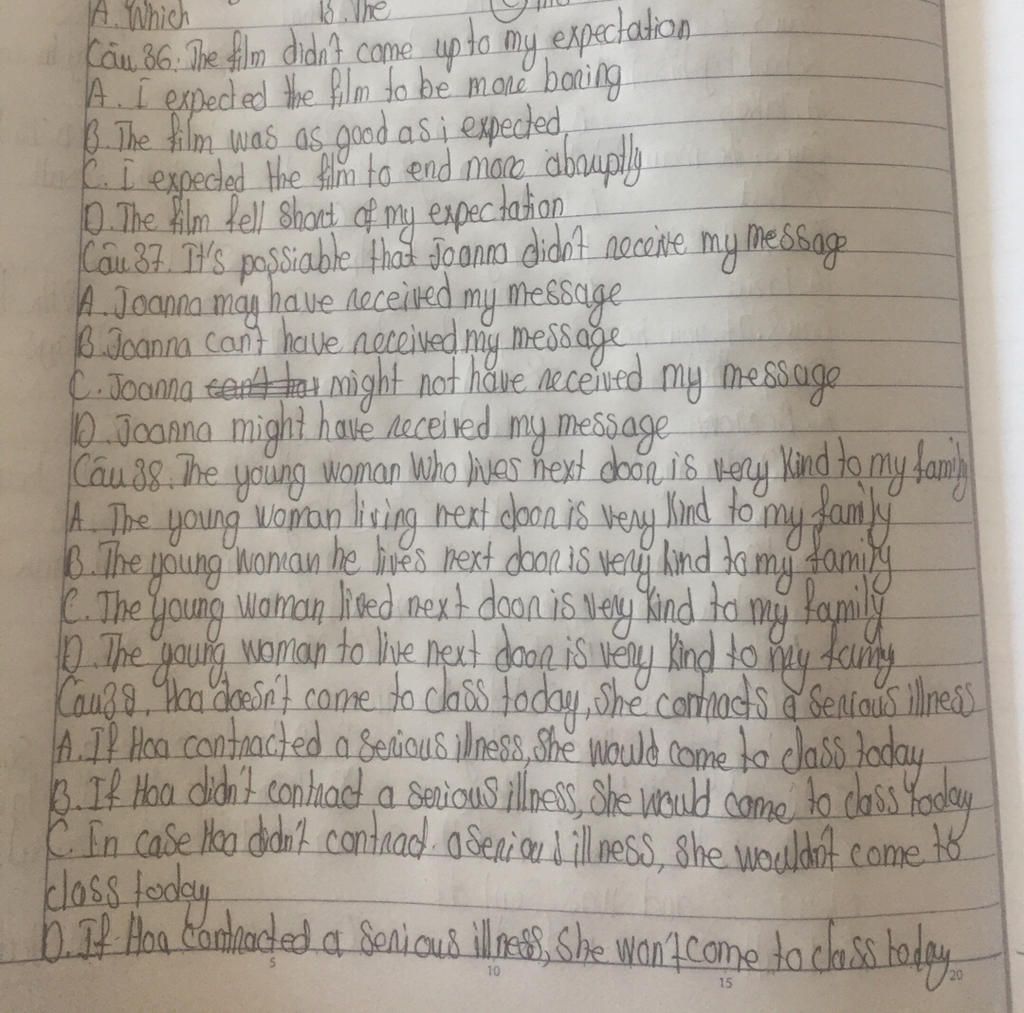 A. Which B. The C
Câu 36. The film didn't come up to my expectation
A. I expected the film to be more boring
B. The film was as good as i expected
C. I expected the film to end more abruptly
D. The film fell short of my expectation
Câu 37. It's possiable that Joanna didn't receive my message
A. Joanna may have received my message
B. Joanna can't have received my message
C. Joanna can't hav might not have received my message
D. Joanna might have received my message
Câu 38. The young woman who lives next door is very kind to my family
A. The young woman living next door is very kind to my family
B. The young woman he lives next door is very kind to my family
C. The young woman lived next door is very kind to my family
D. The young woman to live next door is very kind to my famy
Câu 39. Hoa doesn't come to class today, she contracts a serious illness
A. If Hoa contracted a serious illness, she would come to class today
B. If Hoa didn't contract a serious illness, she would come to class today
C. In case Hoa didn't contract a serious illness, she wouldn't come to
class today
D. If Hoa contracted a serious illness, she won't come to class today
5 10 15 20